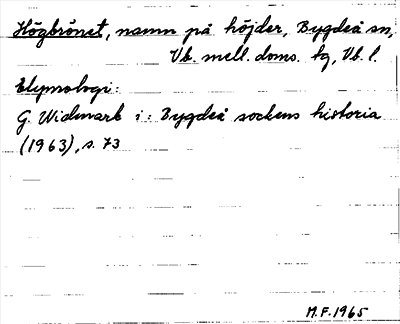 Högbrånet, namn på höjder, Bygdeå sn,
Vb. mell. doms. tg, Vb. l.
Etymologi:
G. Widmark i: Bygdeå sockens historia
(1963), s. 73
M.F. 1965